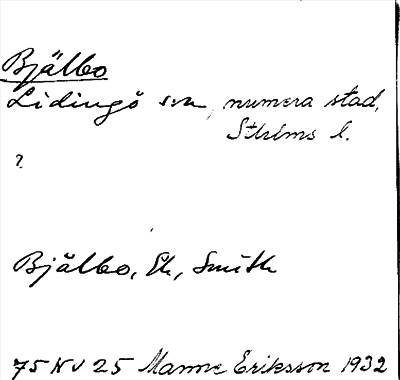 Bjälbo
Lidingö sn, numera stad,
Sthlms l.
?
Bjälbo, Eh, Smith
75 NV 25 Manne Eriksson 1932